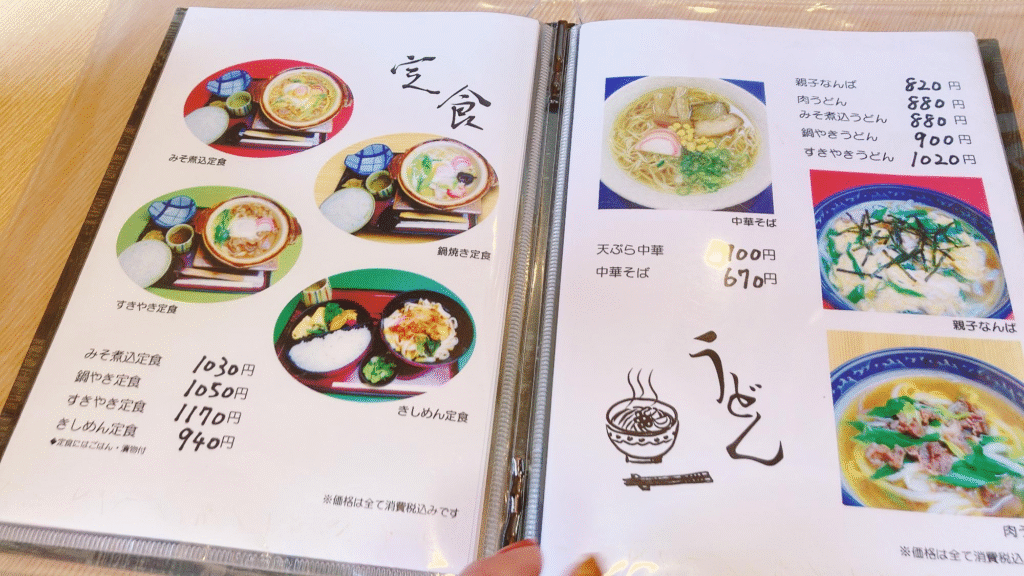 定食
みそ煮込定食
鍋焼き定食
すきやき定食
きしめん定食
みそ煮込定食 1030円
鍋やき定食 1050円
すきやき定食 1170円
きしめん定食 940円
◆定食にはごはん・漬物付
※価格は全て消費税込みです
親子なんば 820円
肉うどん 880円
みそ煮込うどん 880円
鍋やきうどん 900円
すきやきうどん 1020円
中華そば
天ぷら中華 100円
中華そば 670円
親子なんば
うどん
肉う
※価格は全て消費税込